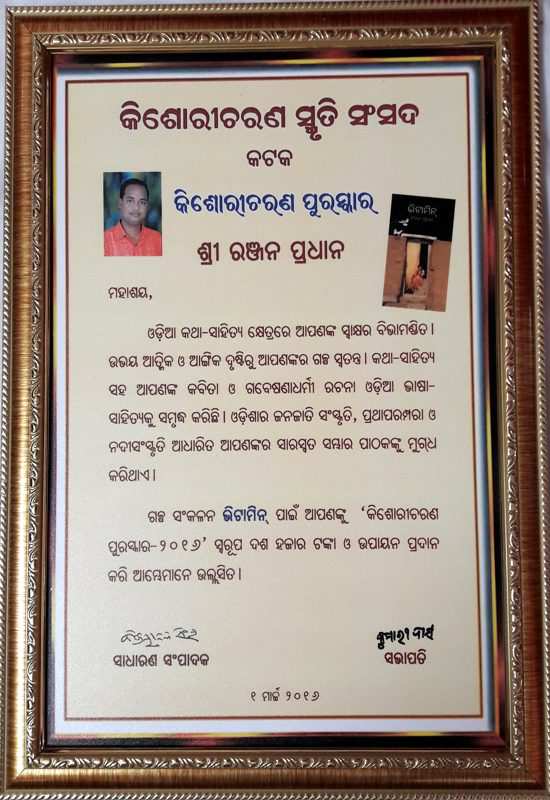 କିଶୋରୀଚରଣ ସ୍ମୃତି ସଂସଦ
କଟକ
କିଶୋରୀଚରଣ ପୁରସ୍କାର
ଭିଟାମିନ୍
ଶ୍ରୀ ରଞ୍ଜନ ପ୍ରଧାନ
ମହାଶୟ,
ଓଡ଼ିଆ କଥା-ସାହିତ୍ୟ କ୍ଷେତ୍ରରେ ଆପଣଙ୍କ ସ୍ୱାକ୍ଷର ବିଭାମଣ୍ଡିତ।
ଉଭୟ ଆତ୍ମିକ ଓ ଆଙ୍ଗିକ ଦୃଷ୍ଟିରୁ ଆପଣଙ୍କର ଗଳ୍ପ ସ୍ୱତନ୍ତ୍ର। କଥା-ସାହିତ୍ୟ
ସହ ଆପଣଙ୍କ କବିତା ଓ ଗବେଷଣାଧର୍ମୀ ରଚନା ଓଡ଼ିଆ ଭାଷା-
ସାହିତ୍ୟକୁ ସମୃଦ୍ଧ କରିଛି। ଓଡ଼ିଶାର ଜନଜାତି ସଂସ୍କୃତି, ପ୍ରଥାପରମ୍ପରା ଓ
ନଦୀସଂସ୍କୃତି ଆଧାରିତ ଆପଣଙ୍କର ସାରସ୍ୱତ ସମ୍ଭାର ପାଠକଙ୍କୁ ମୁଗ୍ଧ
କରିଥାଏ।
ଗଳ୍ପ ସଂକଳନ ଭିଟାମିନ୍ ପାଇଁ ଆପଣଙ୍କୁ ‘କିଶୋରୀଚରଣ
ପୁରସ୍କାର-୨୦୧୬’ ସ୍ୱରୂପ ଦଶ ହଜାର ଟଙ୍କା ଓ ଉପାୟନ ପ୍ରଦାନ
କରି ଆମ୍ଭେମାନେ ଉଲ୍ଲସିତ।
ସାଧାରଣ ସଂପାଦକ
ସଭାପତି
୧ ମାର୍ଚ୍ଚ ୨୦୧୬